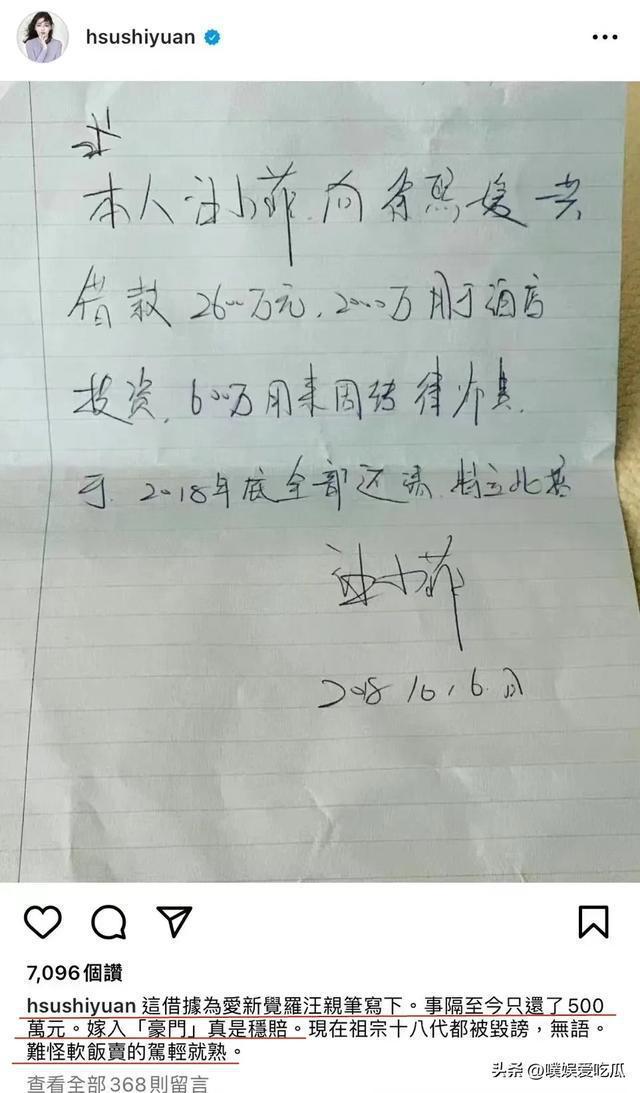 hsushiyuan
本人汪小菲向徐熙媛共
借款2600万元,2000万用于酒店
投资,600万用来周转律师费,
于2018年底全部还清,特立此据
汪小菲
2018 10,6.日
7,096個讚
hsushiyuan 這借據為愛新覺羅汪親筆寫下。事隔至今只還了500
萬元。嫁入「豪門」真是穩賠。現在祖宗十八代都被毀謗,無語。
難怪軟飯賣的駕輕就熟。
查看全部368則留言
头条 @噗娱爱吃瓜